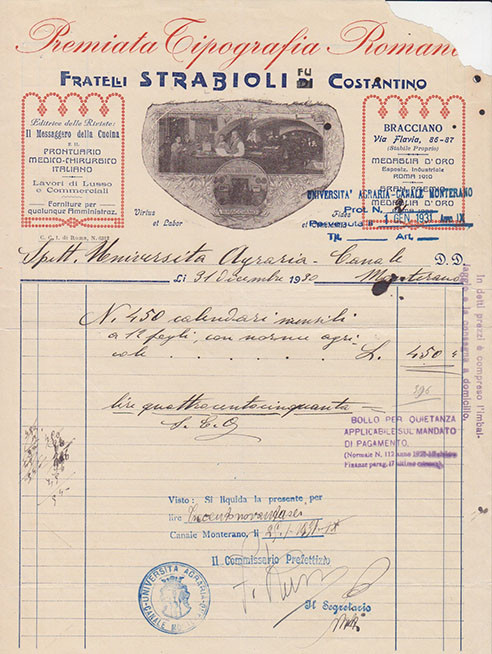 Premiata Tipografia Romana
FRATELLI STRABIOLI FU DI COSTANTINO
Editrice delle Riviste:
Il Messaggero della Cucina
E IL
PRONTUARIO
MEDICO-CHIRURGICO
ITALIANO
Lavori di Lusso
e Commerciali
Forniture per
qualunque Amministraz.
C. C. I. di Roma, N.
Virtus
et Labor
Fides
et
BRACCIANO
BRACCIANO
Via Flavia, 85-87
(Stabile Proprio)
MEDAGLIA D'ORO
Esposiz. Industriale
ROMA 1910
GRAN PREMIO
MEDAGLIA D'ORO
UNIVERSITÀ AGRARIA-CANALE MONTERANO
Prot. N. 2
1 GEN. 1931 Anno IX
Tit. Art.
Spett. Università Agraria - Canale D. D.
Li 31 Dicembre 1930 Monterano
N. 450 calendari mensili
a 12 fogli, con norme agri
cole L. 450
396
lire quattrocentocinquanta
S. E. O.
In detti prezzi è compreso l'imbal-
laggio e la consegna a domicilio.
BOLLO PER QUIETANZA
APPLICABILE SUL MANDATO
DI PAGAMENTO.
(Normale N. 112 anno
Finanze parag.
Visto: Si liquida la presente per
lire trecentonovantasei
Canale Monterano, li 29/1 1931-IX
Il Commissario Prefettizio
Il Segretario
UNIVERSITÀ AGRARIA
CANALE MONTERANO